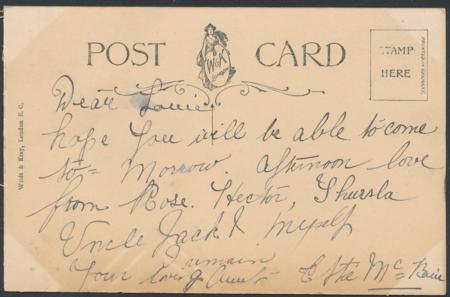 POST CARD
W & K
London
STAMP
HERE
Wildt & Kray, London E.C.
Dear Louie
hope you will be able to come
to=Morrow. afternoon love
from Rose. Hector, Thursla
Uncle Jack & myself
remain
Your loving Aunt Effie McBain